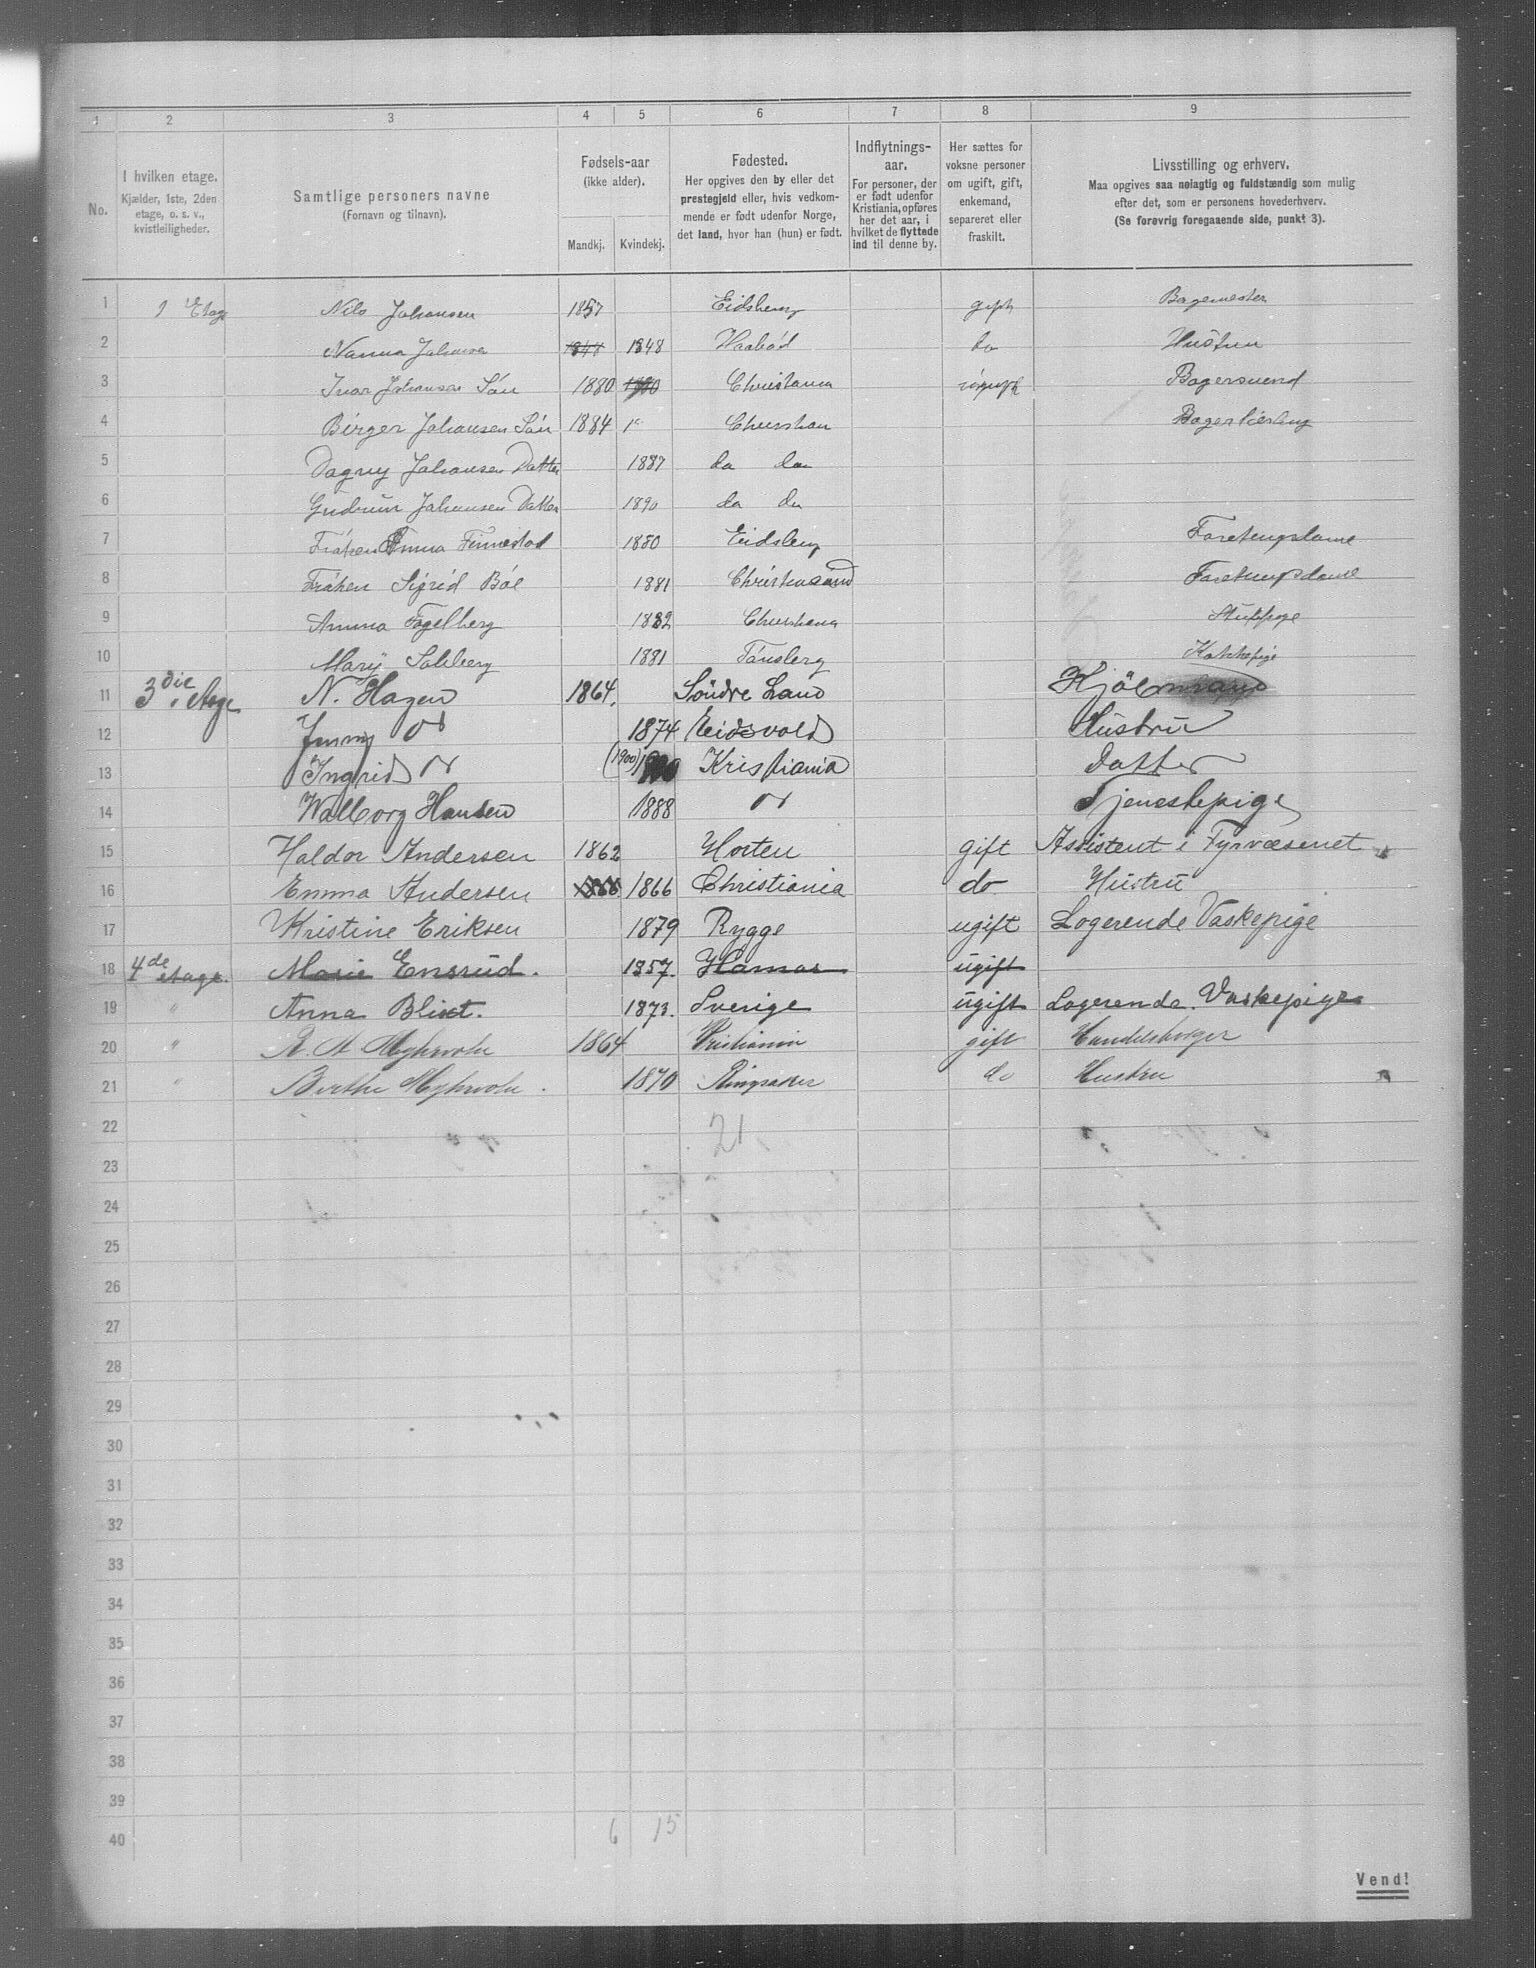 1 2 3 4 5 6 7 8 9
No.
I hvilken etage.
Kjælder, 1ste, 2den
etage, o. s. v.,
kvistleiligheder.
Samtlige personers navne
(Fornavn og tilnavn).
Fødsels-aar
(ikke alder).
Mandkj. Kvindekj.
Fødested.
Her opgives den by eller det
prestegjeld eller, hvis vedkom-
mende er født udenfor Norge,
det land, hvor han (hun) er født.
Indflytnings-
aar.
For personer, der
er født udenfor
Kristiania, opføres
her det aar, i
hvilket de flyttede
ind til denne by.
Her sættes for
voksne personer
om ugift, gift,
enkemand,
separeret eller
fraskilt.
Livsstilling og erhverv.
Maa opgives saa nøiagtig og fuldstændig som mulig
efter det, som er personens hovederhverv.
(Se forøvrig foregaaende side, punkt 3).
1 Etage Nils Johansen 1857 Eidsberg gift Bagemester
2 Nanna Johansen 1848 1848 do Hustru
3 Ivar Johansen Sön 1880 1880 Christiania ugift Bagersvend
4 Birger Johansen Sön 1884 Bagerlærling
5 Dagny Johansen Datter 1887 do do
6 Gudrun Johansen Datter 1890 do do
7 Fröken Emma Finnestad 1880 Eidsberg
8 Fröken Sigrid Böe 1881 Christiansand
9 Anna Fogelberg 1882 Christiania Stuepige
10 Mary Solberg 1881 Tönsberg Kokkepige
11 3die Etage N. Hagen 1864. Söndre Land
12 Jenny do 1874 Eidsvold Hustru
13 Ingrid do (1900) 1900 Kristiania Datter
14 Walborg Hansen 1888 do Tjenestepige
15 Haldor Andersen 1862 Horten gift Assistent i Fyrvæsenet
16 Emma Andersen 1866 1866 Christiania do Hustru
17 Kristine Eriksen 1879 Rygge ugift Logerende Vaskepige
18 4de etage. Marie Ensrud. 1857. Hamar ugift
19 " Anna Blixt. 1873. Sverige ugift Logerende. Vaskepige
20 " 1864 Kristiania gift Handelsborger
21 " Berthe 1870 Ringsaker do Hustru
22 21
23
24
25
26
27
28
29
30
31
32
33
34
35
36
37
38
39
40 6 15
Vend!